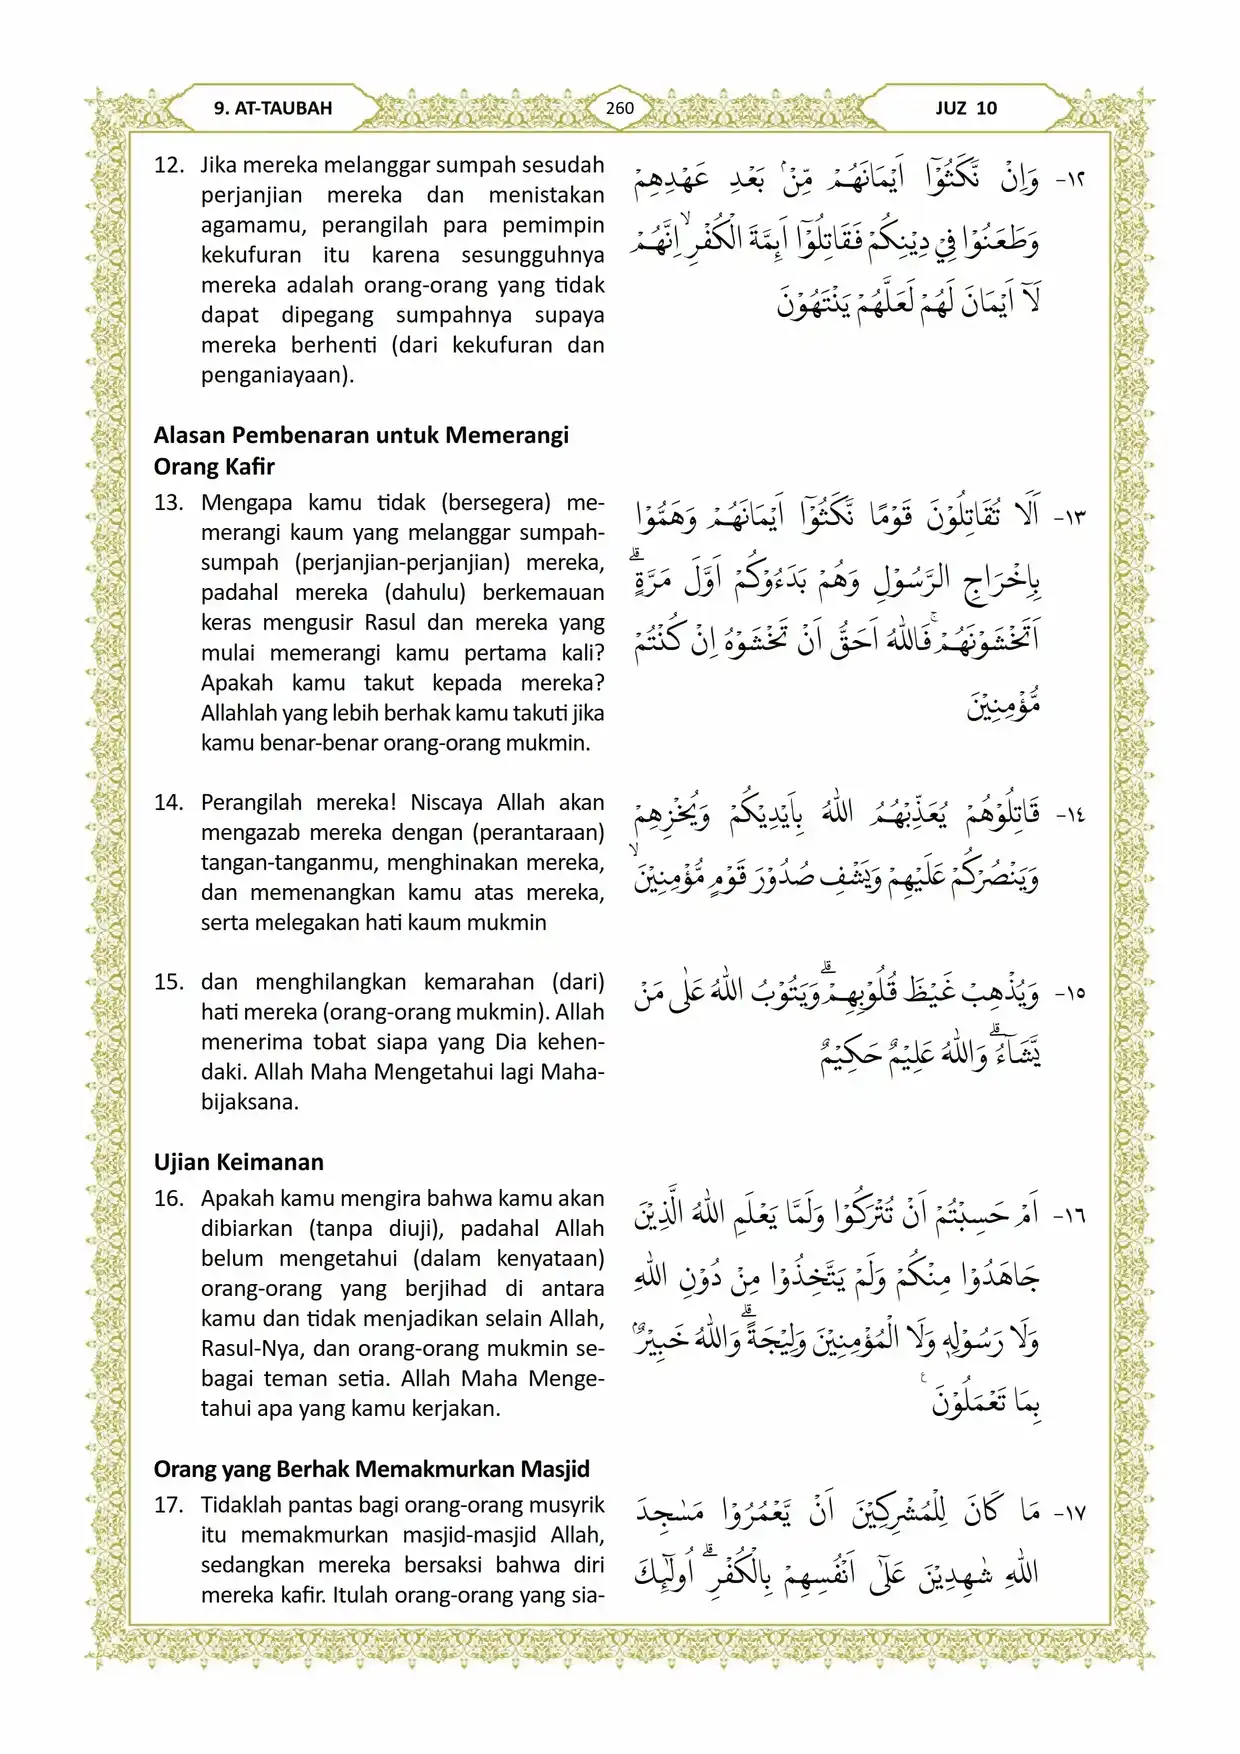 9. AT-TAUBAH
260
JUZ 10
12. Jika mereka melanggar sumpah sesudah
perjanjian mereka dan menistakan
agamamu, perangilah para pemimpin
kekufuran itu karena sesungguhnya
mereka adalah orang-orang yang tidak
dapat dipegang sumpahnya supaya
mereka berhenti (dari kekufuran dan
penganiayaan).
١٢- وَاِنْ نَّكَثُوْٓا اَيْمَانَهُمْ مِّنْۢ بَعْدِ عَهْدِهِمْ
وَطَعَنُوْا فِيْ دِيْنِكُمْ فَقَاتِلُوْٓا اَىِٕمَّةَ الْكُفْرِۙ اِنَّهُمْ
لَآ اَيْمَانَ لَهُمْ لَعَلَّهُمْ يَنْتَهُوْنَ
Alasan Pembenaran untuk Memerangi
Orang Kafir
13. Mengapa kamu tidak (bersegera) me-
merangi kaum yang melanggar sumpah-
sumpah (perjanjian-perjanjian) mereka,
padahal mereka (dahulu) berkemauan
keras mengusir Rasul dan mereka yang
mulai memerangi kamu pertama kali?
Apakah kamu takut kepada mereka?
Allahlah yang lebih berhak kamu takuti jika
kamu benar-benar orang-orang mukmin.
١٣- اَلَا تُقَاتِلُوْنَ قَوْمًا نَّكَثُوْٓا اَيْمَانَهُمْ وَهَمُّوْا
بِاِخْرَاجِ الرَّسُوْلِ وَهُمْ بَدَءُوْكُمْ اَوَّلَ مَرَّةٍۗ
اَتَخْشَوْنَهُمْۚ فَاللّٰهُ اَحَقُّ اَنْ تَخْشَوْهُ اِنْ كُنْتُمْ
مُّؤْمِنِيْنَ
14. Perangilah mereka! Niscaya Allah akan
mengazab mereka dengan (perantaraan)
tangan-tanganmu, menghinakan mereka,
dan memenangkan kamu atas mereka,
serta melegakan hati kaum mukmin
١٤- قَاتِلُوْهُمْ يُعَذِّبْهُمُ اللّٰهُ بِاَيْدِيْكُمْ وَيُخْزِهِمْ
وَيَنْصُرْكُمْ عَلَيْهِمْ وَيَشْفِ صُدُوْرَ قَوْمٍ مُّؤْمِنِيْنَۙ
15. dan menghilangkan kemarahan (dari)
hati mereka (orang-orang mukmin). Allah
menerima tobat siapa yang Dia kehen-
daki. Allah Maha Mengetahui lagi Maha-
bijaksana.
١٥- وَيُذْهِبْ غَيْظَ قُلُوْبِهِمْۗ وَيَتُوْبُ اللّٰهُ عَلٰى مَنْ
يَّشَاۤءُۗ وَاللّٰهُ عَلِيْمٌ حَكِيْمٌ
Ujian Keimanan
16. Apakah kamu mengira bahwa kamu akan
dibiarkan (tanpa diuji), padahal Allah
belum mengetahui (dalam kenyataan)
orang-orang yang berjihad di antara
kamu dan tidak menjadikan selain Allah,
Rasul-Nya, dan orang-orang mukmin se-
bagai teman setia. Allah Maha Menge-
tahui apa yang kamu kerjakan.
١٦- اَمْ حَسِبْتُمْ اَنْ تُتْرَكُوْا وَلَمَّا يَعْلَمِ اللّٰهُ الَّذِيْنَ
جَاهَدُوْا مِنْكُمْ وَلَمْ يَتَّخِذُوْا مِنْ دُوْنِ اللّٰهِ
وَلَا رَسُوْلِهٖ وَلَا الْمُؤْمِنِيْنَ وَلِيْجَةًۗ وَاللّٰهُ خَبِيْرٌۢ
بِمَا تَعْمَلُوْنَ ࣖ
Orang yang Berhak Memakmurkan Masjid
17. Tidaklah pantas bagi orang-orang musyrik
itu memakmurkan masjid-masjid Allah,
sedangkan mereka bersaksi bahwa diri
mereka kafir. Itulah orang-orang yang sia-
١٧- مَا كَانَ لِلْمُشْرِكِيْنَ اَنْ يَّعْمُرُوْا مَسٰجِدَ
اللّٰهِ شٰهِدِيْنَ عَلٰٓى اَنْفُسِهِمْ بِالْكُفْرِۗ اُولٰۤىِٕكَ